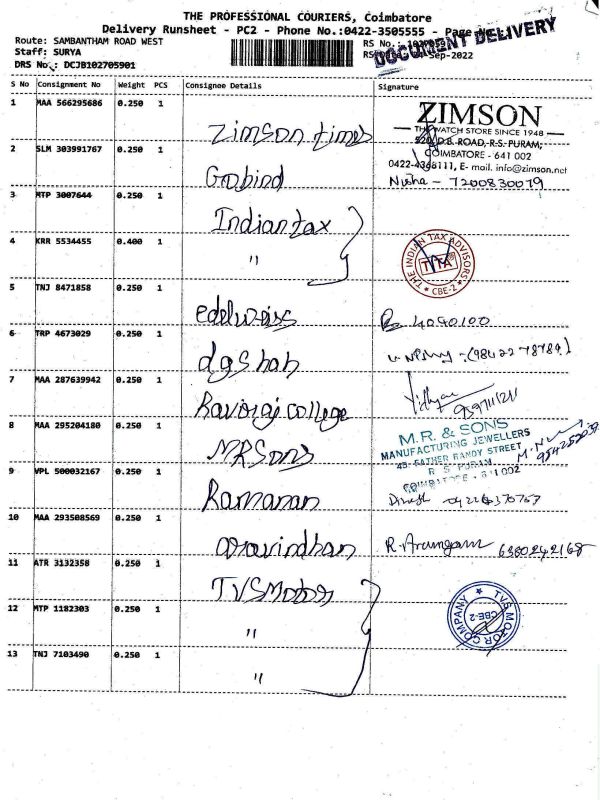 THE PROFESSIONAL COURIERS, Coimbatore
Delivery Runsheet - PC2 - Phone No.:0422-3505555 - Page No.:
DOCUMENT DELIVERY
Route: SAMBANTHAM ROAD WEST
RS No.:
Staff: SURYA
Sep-2022
DRS No.: DCJB102705901
S No Consignment No Weight PCS Consignee Details Signature
1 MAA 566295686 0.250 1 Zimson times
ZIMSON
THE WATCH STORE SINCE 1948
D.B. ROAD, R.S. PURAM,
COIMBATORE - 641 002
0422-4368111, E- mail. info@zimson.net
2 SLM 303991767 0.250 1 Gobind Nisha - 7200830079
3 MTP 3007644 0.250 1 Indian tax
4 KRR 5534455 0.400 1 "
THE INDIAN TAX ADVISORS
TITA
CBE-2
5 TNJ 8471858 0.250 1 edelweiss 4090100
6 TRP 4673029 0.250 1 dgshah
7 MAA 287639942 0.250 1 Raviraj college
8 MAA 295204180 0.250 1 MRSons
M.R. & SONS
MANUFACTURING JEWELLERS
45- RATHER BANDY STREET
R S PURAM
COIMBATORE - 641 002
9 VPL 500032167 0.250 1 Ramanan Dinesh
10 MAA 293508569 0.250 1 aravindhan R. Arumugam 6380242168
11 ATR 3132358 0.250 1 TVS Motor
12 MTP 1182303 0.250 1 "
TVS MOTOR COMPANY
CBE-2
13 TNJ 7103490 0.250 1 "